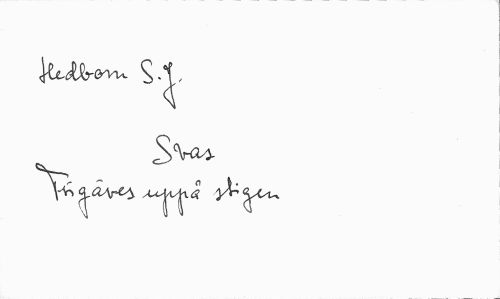 Hedbom S.J.
Svas
Fifigäves uppå stigen